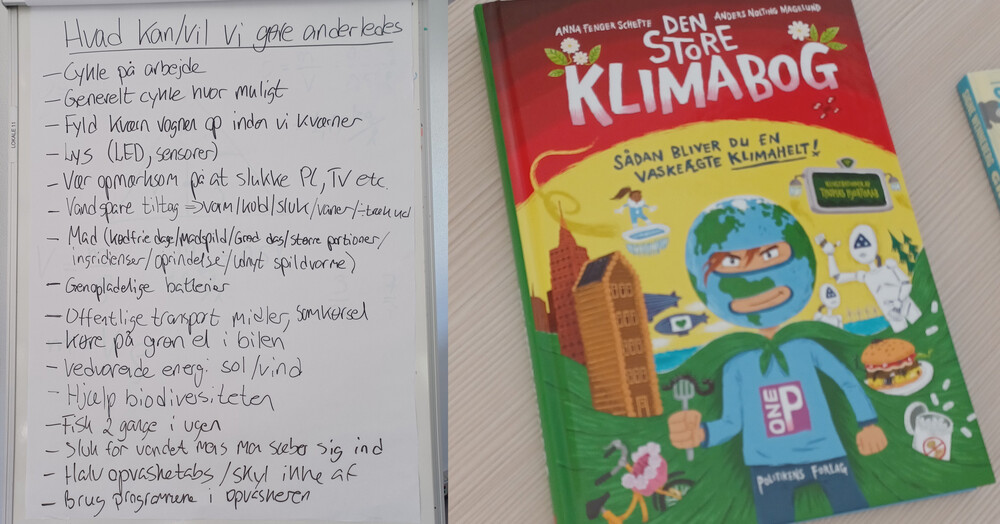 Hvad kan/vil vi gøre anderledes
- Cykle på arbejde
- Generelt cykle hvor muligt
- Fyld kværn vognen op inden vi kværner
- Lys (LED, sensorer)
- Vær opmærksom på at slukke PC, TV etc.
- Vandspare tiltag → varm/kold/sluk/vaner/÷træk ud
- Mad (kødfrie dage/madspild/Grød dag/større portioner/
ingridienser/oprindelse/udnyt spildvarme)
- Genopladelige batterier
- Offentlige transport midler, samkørsel
- Køre på grøn el i bilen
- Vedvarende energi sol/vind
- Hjælp biodiversiteten
- Fisk 2 gange i ugen
- Sluk for vandet mens man sæber sig ind
- Halv opvasketabs/skyl ikke af
- Brug programmerne i opvaskeren
LOKALE 11
ANNA FENGER SCHEFTE
ANDERS NOLTING MAGELUND
DEN
STORE
KLIMABOG
SÅDAN BLIVER DU EN
VASKEÆGTE KLIMAHELT!
ONE
P
POLITIKENS FORLAG